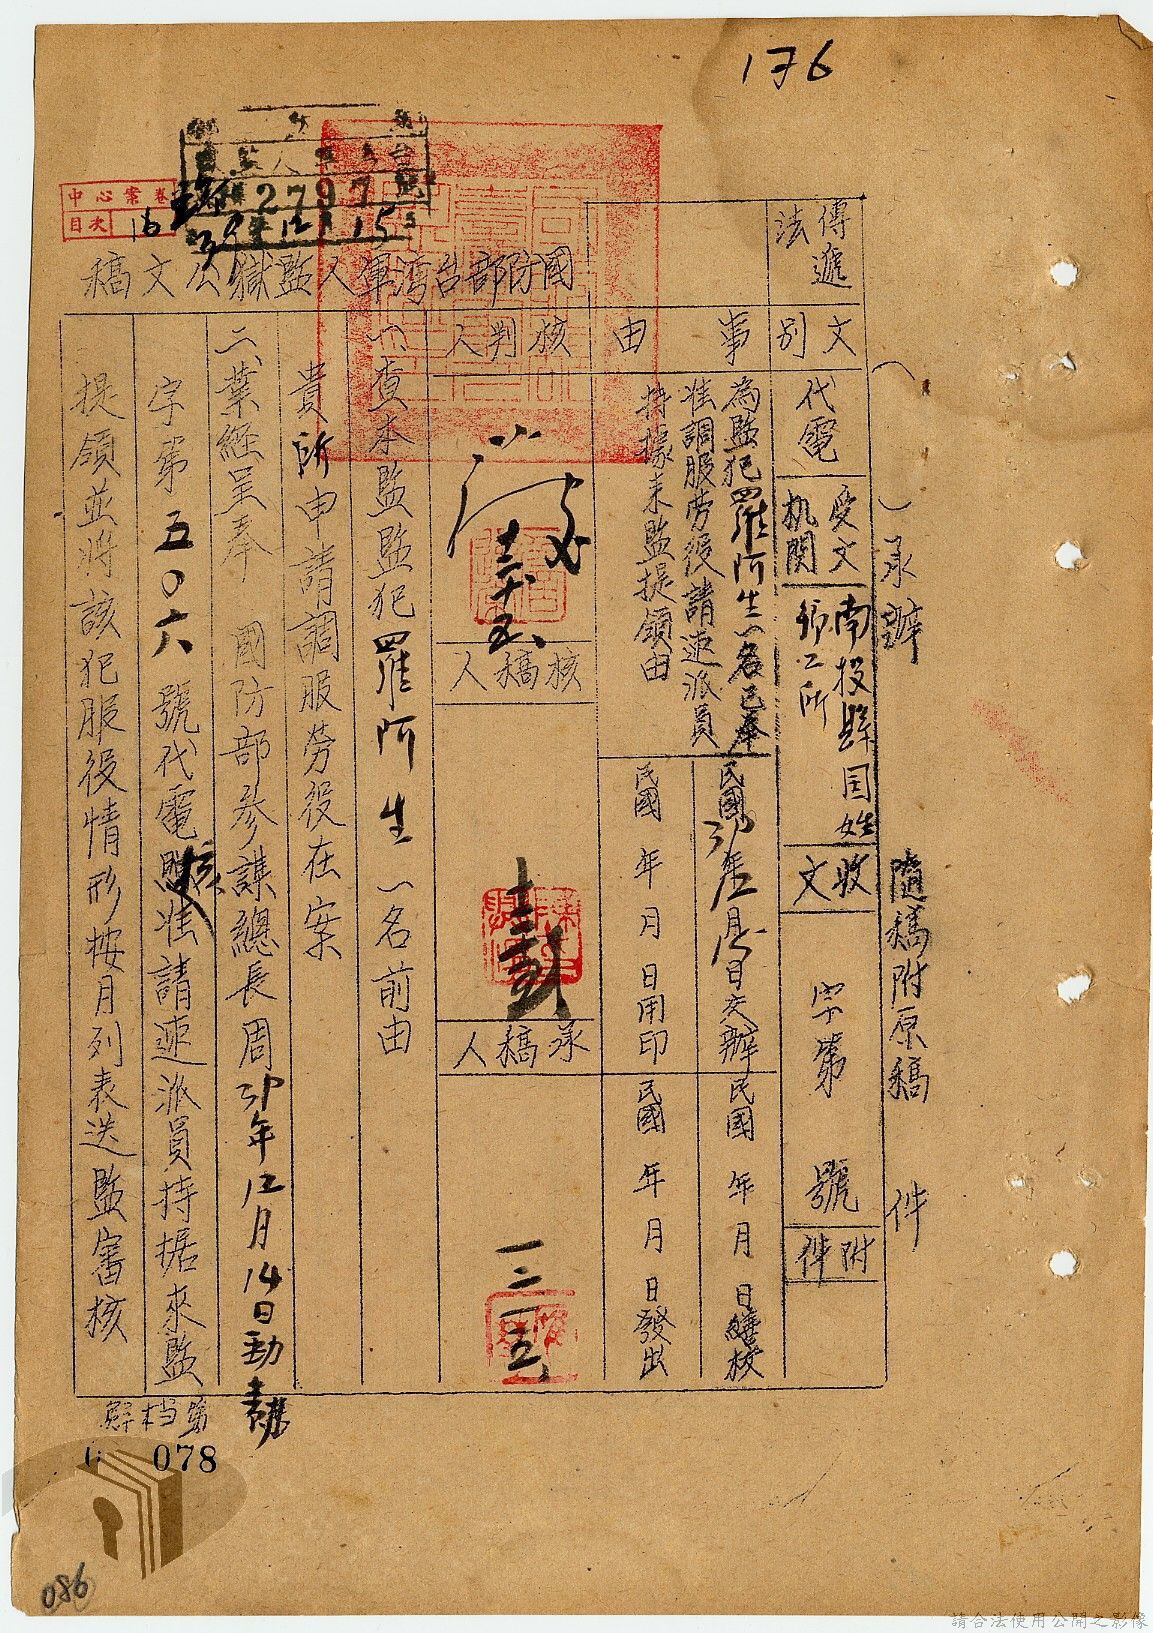 176
中心案卷
目次 16
2797
39年12月15
國防部台湾軍人監獄公文稿
(　)承辦
隨稿附原稿　件
傳遞法
文別
代電
受文机関
南投縣国姓鄉公所
收文
字第　號
附件
事由
為監犯羅阿生一名已奉
准調服劳役請速派員
持據来監提領由
民國39年12月15日交辦
民國　年　月　日繕校
民國　年　月　日用印
民國　年　月　日發出
核判人
十二十五
核稿人
承稿人
一二一五
一、查本監監犯羅阿生一名前由
貴所申請調服勞役在案
二、業經呈奉　國防部參謀總長周39年12月14日勁
字第五〇六號代電核准請速派員持据來監
提領並將該犯服役情形按月列表送監審核
078
086
請合法使用公開之影像